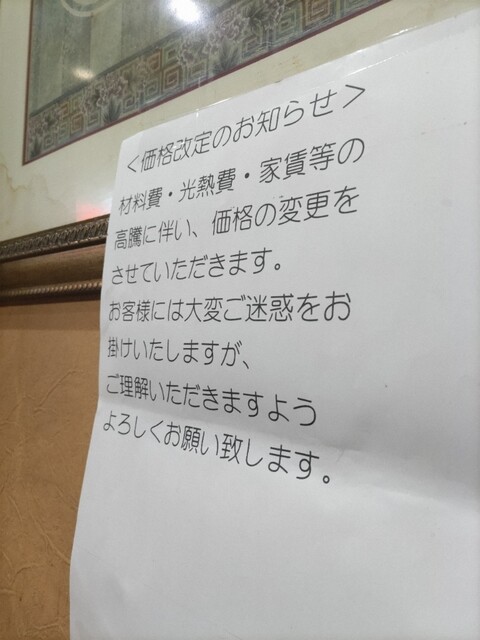 ＜価格改定のお知らせ＞
材料費・光熱費・家賃等の
高騰に伴い、価格の変更を
させていただきます。
お客様には大変ご迷惑をお
掛けいたしますが、
ご理解いただきますよう
よろしくお願い致します。